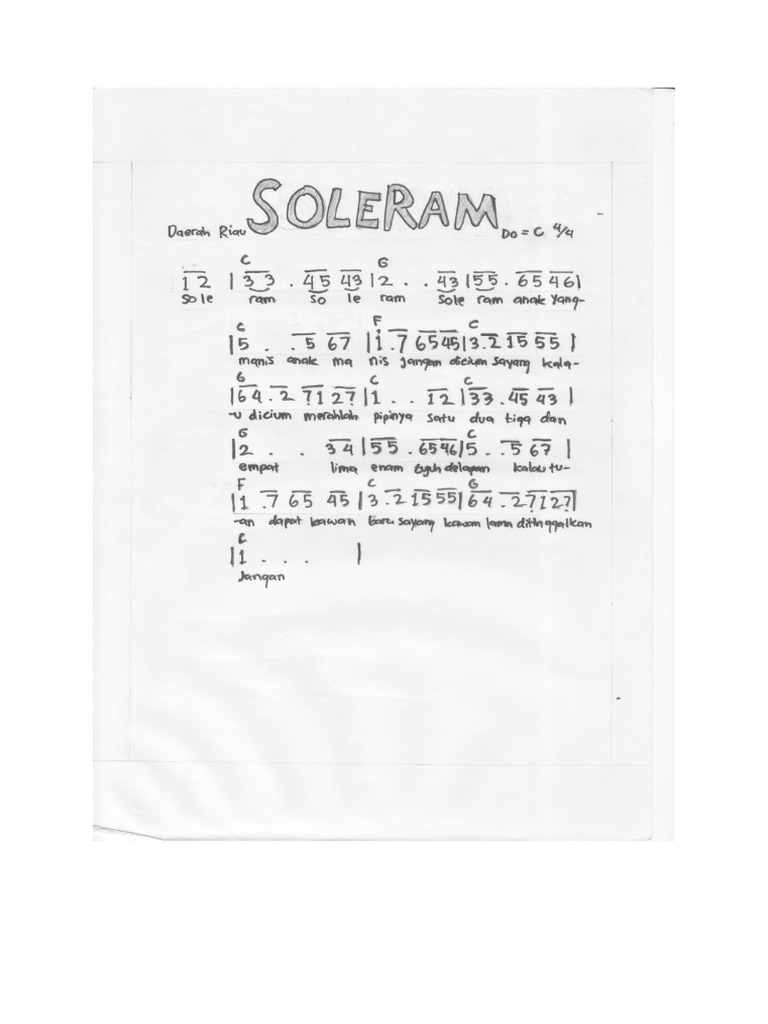 SOLERAM
Daerah Riau Do = C 4/4
C G
1 2 | 3 3 . 4 5 4 3 | 2 . . 4 3 | 5 5 . 6 5 4 6 |
Sole ram so le ram Sole ram anak yang-
C F C
| 5 . . 5 6 7 | 1 . 7 6 5 4 5 | 3 . 2 1 5 5 5 |
manis anak ma nis jangan dicium Sayang kala-
G C C
| 6 4 . 2 7 1 2 7 | 1 . . 1 2 | 3 3 . 4 5 4 3 |
-u dicium merahlah pipinya satu dua tiga dan
G C
| 2 . . 3 4 | 5 5 . 6 5 4 6 | 5 . . 5 6 7 |
empat lima enam tujuh delapan kalau tu-
F C G
| 1 . 7 6 5 4 5 | 3 . 2 1 5 5 5 | 6 4 . 2 7 1 2 7 |
-an dapat kawan baru sayang kawan lama ditinggalkan
C
| 1 . . . |
Jangan